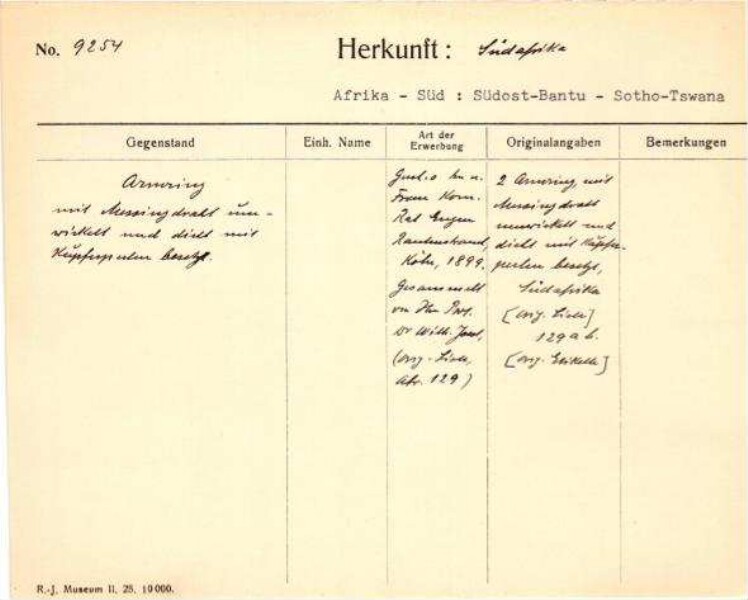 No. 9254
Herkunft: Südafrika
Afrika - Süd : Südost-Bantu - Sotho-Tswana
Gegenstand
Einh. Name
Art der
Erwerbung
Originalangaben
Bemerkungen
Armring
mit Messingdraht um-
wickelt und dicht mit
Kupferperlen besetzt.
Frau Kom.
Rat Eugen
Rautenstrauch,
Köln, 1899.
Gesammelt
von Hn. Prof.
Dr Wilh. Joest,
(orig. Liste,
129)
2 Armring, mit
Messingdraht
umwickelt und
dicht mit Kupfer-
perlen besetzt,
Südafrika
[orig. Liste]
129 a b.
[orig. Etikette]
R.-J. Museum II. 25. 10000.